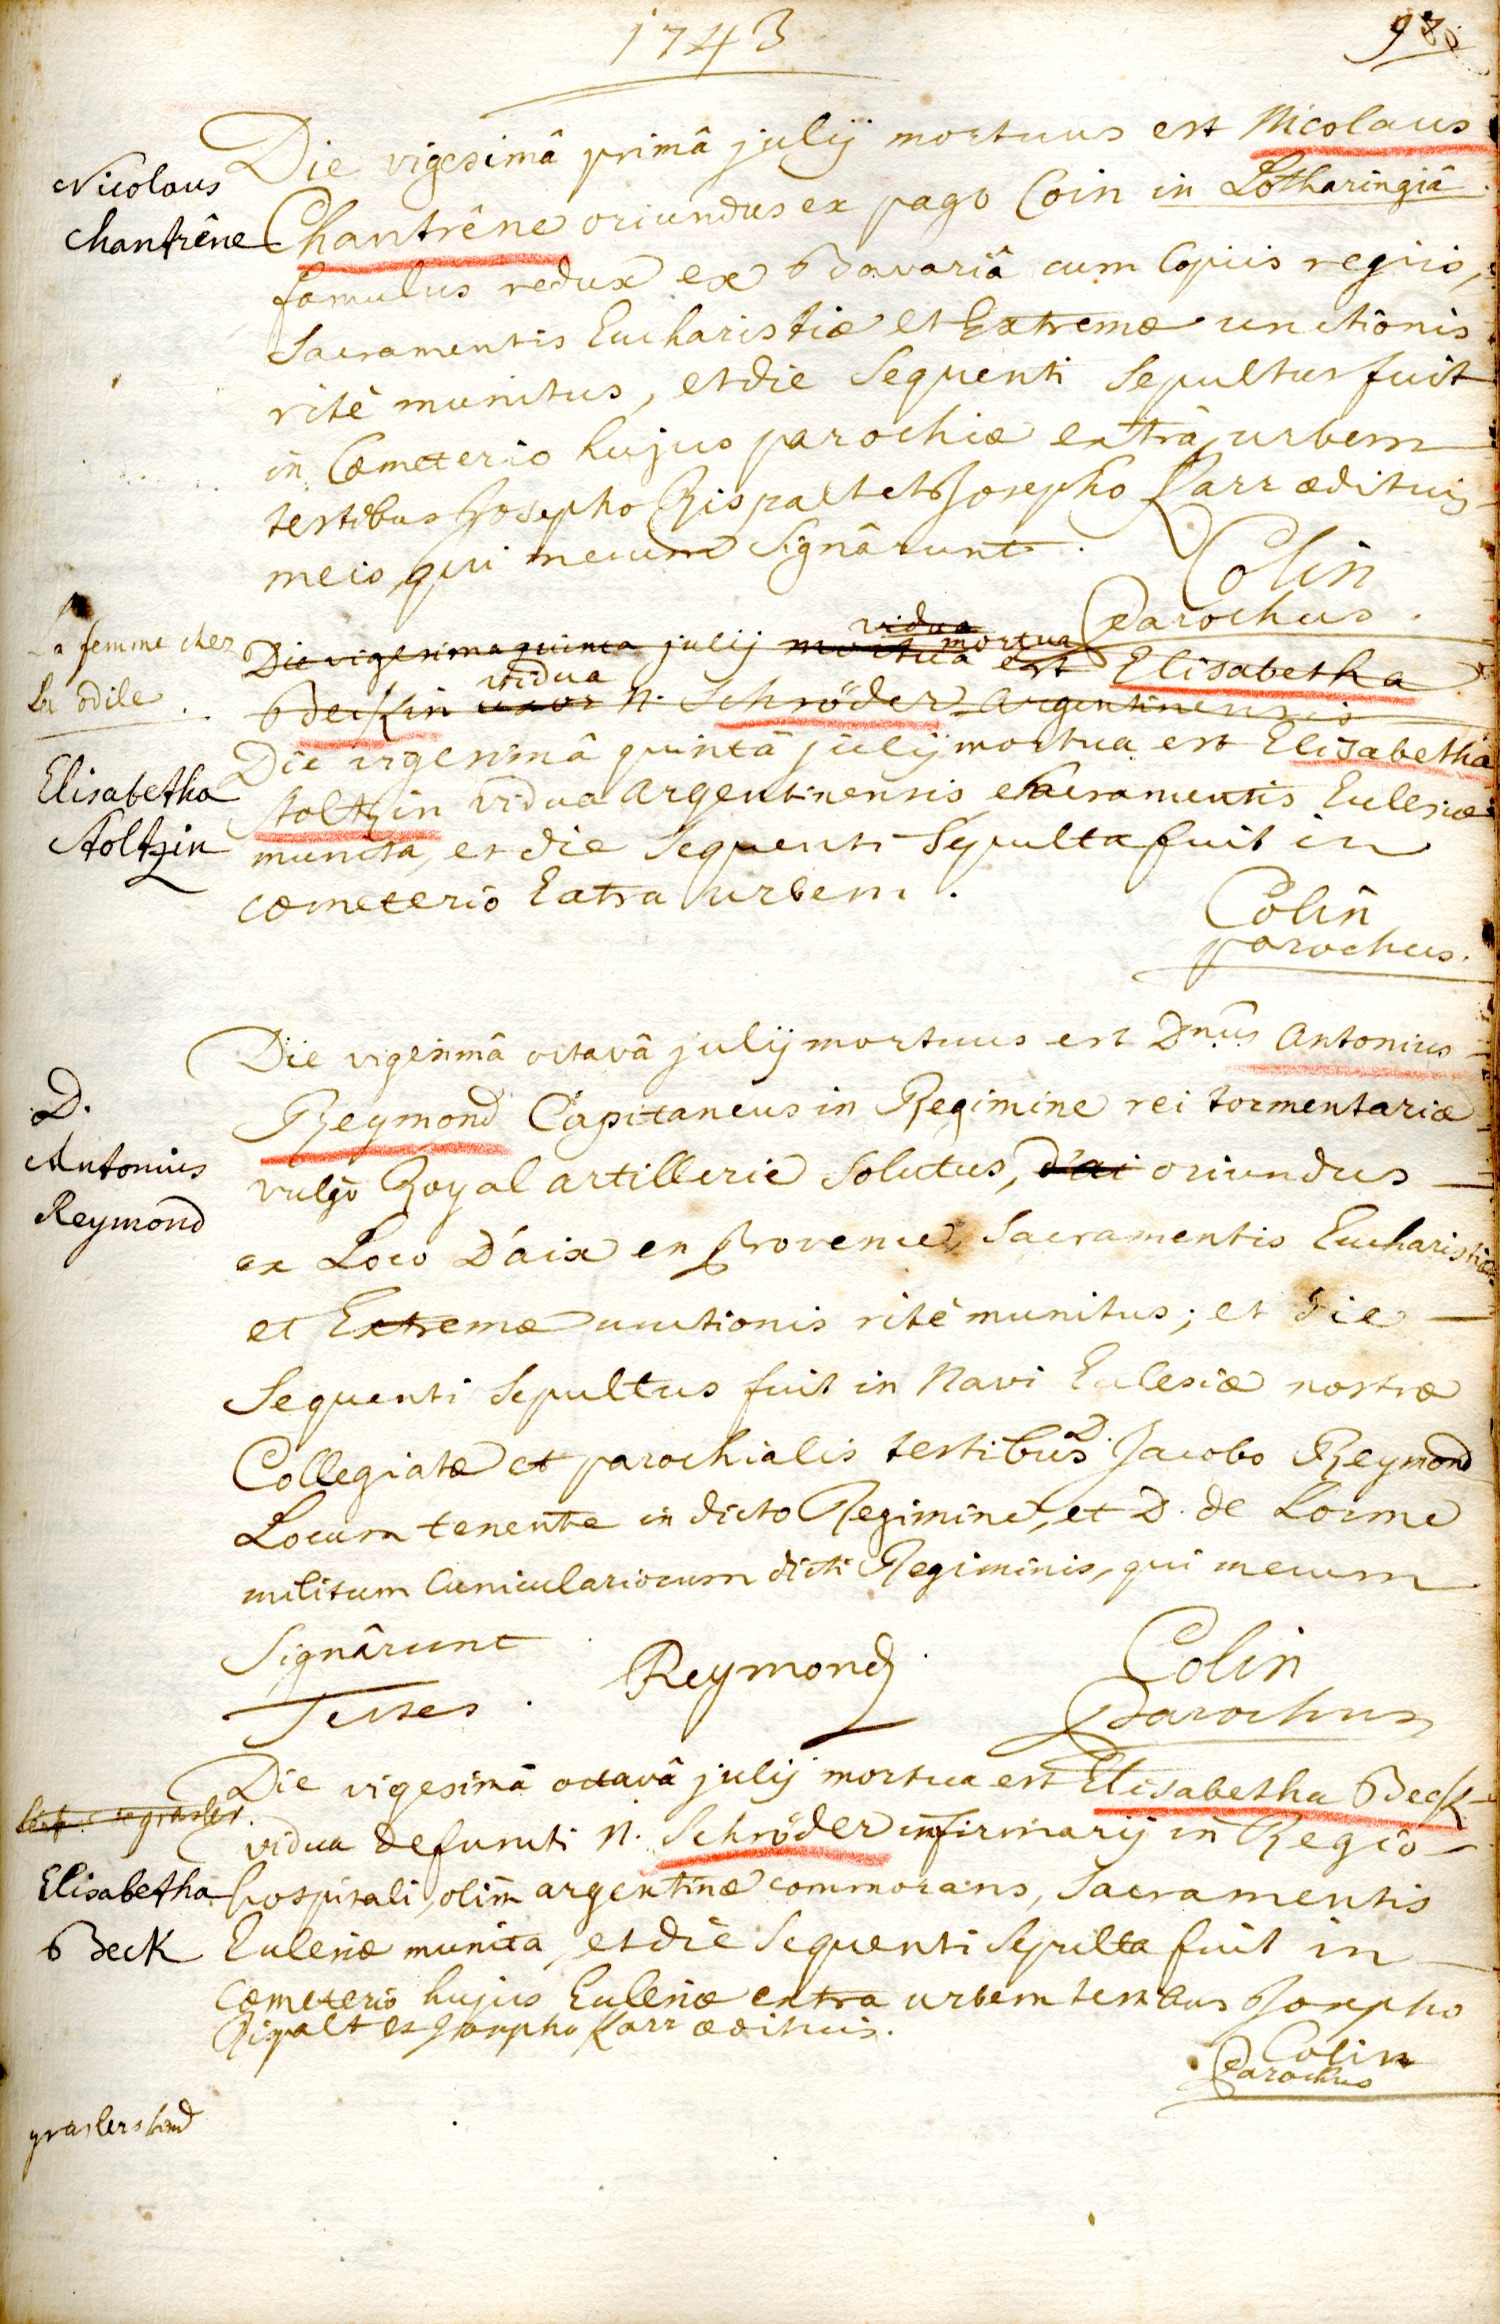 1743
Nicolaus
Chantrêne
Die vigesimâ primâ julij mortuus est Nicolaus
Chantrêne oriundus ex pago Coin in Lotharingiâ
famulus redux ex Bavariâ cum Copiis regiis,
Sacramentis Eucharistiæ et Extremæ unctionis
ritè munitus, et die Sequenti Sepultus fuit
in Cœmeterio hujus parochiæ extrà urbem
testibus Josepho Rispalt et Josepho Karr ædituis
meis qui mecum Signârunt.
Colin
Parochus.
la femme chez
La odile.
vidua
Die vigesima quinta julij mortua mortua est Elisabetha
vidua
Beckin uxor N. Schröder argentinensis
Elisabetha
Stoltzin
Die vigesimâ quintâ julij mortua est Elisabetha
Stoltzin vidua argentinensis Sacramentis Eclesiæ
munita, et die Sequenti Sepulta fuit in
cœmeterio Extra urbem.
Colin
parochus.
D.
Antonius
Reymond
Die vigesimâ octavâ julij mortuus est Dnus Antonius
Reymond Capitaneus in Regimine rei tormentariæ
vulgò Royal artillerie Solutus, d'ai oriundus
ex Loco D'aix en Provence, Sacramentis Eucharistiæ
et Extremæ unctionis ritè munitus; et die
Sequenti Sepultus fuit in Navi Eclesiæ nostræ
Collegiatæ et parochialis testibus D. Jacobo Reymond
Locum tenente in dicto Regimine, et D. de Lorme
militum Cuniculariorum dicti Regiminis, qui mecum
Signârunt
Testes. Reymond
Colin
Parochus
Elisabetha
Beck
Die vigesimâ octavâ julij mortua est Elisabetha Beck
vidua defuncti N. Schröder infirmarij in Regio
hospitali, olim argentinæ commorans, Sacramentis
Eclesiæ munita, et die Sequenti Sepulta fuit in
cœmeterio hujus Eclesiæ extra urbem testibus Josepho
Rispalt et Josepho Karr ædituis.
Colin
Parochus
graslers kind